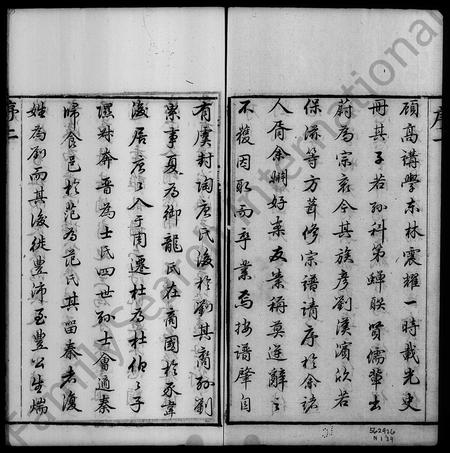 序一
碩髙講學東林震耀一時載光史
冊其子若孫科第蟬聯賢儒輩出
蔚為宗衰今其族彥劉漢濱欣若
保滋等方葺修宗譜請序於余諸
人胥余姻好素友崇稱莫逆辭之
不獲因取而卒業焉按譜肇自
有虞封陶唐氏後於劉其裔孫劉
累事夏為御龍氏在商國於豕韋
後居唐入于周遷杜為杜伯之子
隰對奔晉為士氏四世孫士會適秦
歸食邑於范為范氏其留秦者復
姓為劉而其後徙豐沛至豐公生煓
序二
562426
N 1 29
FamilySearch International